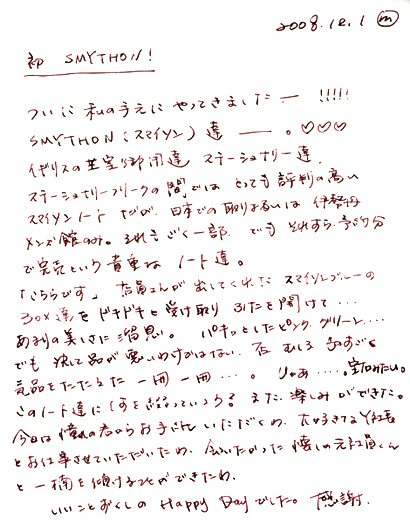 2008.12.1 (m)
初 SMYTHON!
ついに 私の手元に やってきました ー !!!!!
SMYTHON (スマイソン) 達 ー 。♡♡♡
イギリスの王室御用達 ステーショナリー達
ステーショナリーフリークの間では とっても 評判の高い
スマイソンノート ですが、日本での取りあつかいは 伊勢丹
メンズ館のみ。それも ごく一部 でも それすら 予約分
で完売という 貴重な ノート達。
「こちらです」 店員さんが 出してくれた スマイソンブルーの
BOX達を ドキドキと 受け取り ふたを開けて ・・・
あまりの美しさに 溜息。 パキッとした ピンク、グリーン・・・・
でも 決して品が 悪いわけではない。 むしろ ものすごく
気品を たたえた 一冊 一冊 ・・・。 宝石みたい。
このノート達に 何を綴っていこう? また 楽しみ ができた。
今日は 憧れの君から お手に いただくわ、大好きなY社長
とお仕事させていただいたわ、会いたかった 懐しの元社員くん
と 一楠を傾けることができたわ、
いいことづくしの Happy Day でした。 感謝